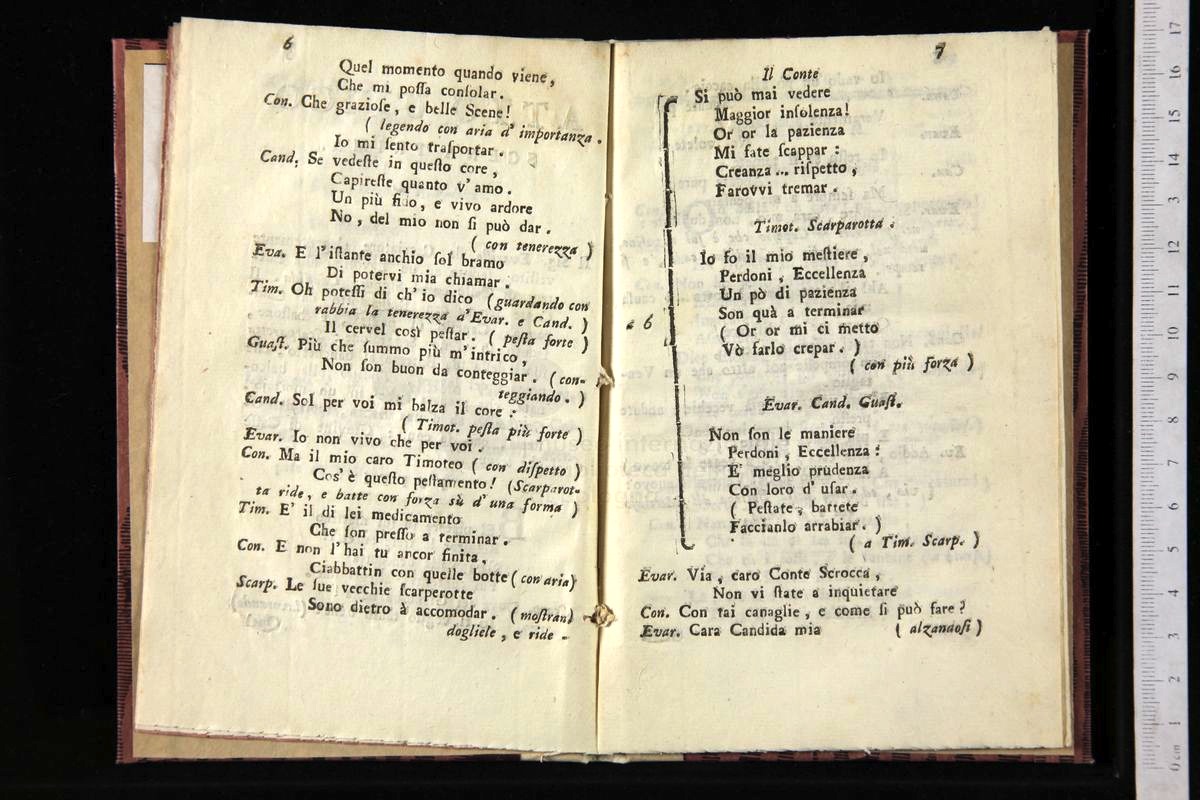 6
Quel momento quando viene,
Che mi poſſa conſolar.
Con. Che grazioſe, e belle Scene!
( legendo con aria d' importanza.
Io mi ſento traſportar.
Cand. Se vedeſte in queſto core,
Capireſte quanto v' amo.
Un più fido, e vivo ardore
No, del mio non ſi può dar.
( con tenerezza )
Eva. E l' iſtante anchio ſol bramo
Di potervi mia chiamar.
Tim. Oh poteſſi di ch' io dico (guardando con
rabbia la tenerezza d'Evar. e Cand. )
Il cervel così peſtar. ( peſta forte )
Guaſt. Più che ſummo più m' intrico,
Non ſon buon da conteggiar. (con-
teggiando. )
Cand. Sol per voi mi balza il core:
( Timot. peſta più forte )
Evar. Io non vivo che per voi.
Con. Ma il mio caro Timoteo ( con diſpetto )
Cos' è queſto peſtamento! (Scarparot-
ta ride, e batte con forza sù d' una forma )
Tim. E' il di lei medicamento
Che ſon preſſo a terminar.
Con. E non l' hai tu ancor finita,
Ciabbattin con quelle botte (con aria)
Scarp. Le ſue vecchie ſcarperotte
Sono dietro à accomodar. (moſtran)
dogliele, e ride.
7
Il Conte
Si può mai vedere
Maggior inſolenza!
Or or la pazienza
Mi fate ſcappar:
Creanza... riſpetto,
Farovvi tremar.
Timot. Scarparotta.
Io fo il mio meſtiere,
Perdoni, Eccellenza
Un pò di pazienza
Son quà a terminar
a 6
( Or or mi ci metto
Vò farlo crepar. )
( con più forza )
Evar. Cand. Guaſt.
Non ſon le maniere
Perdoni, Eccellenza:
E' meglio prudenza
Con loro d' uſar.
( Peſtate, battete
Faccianlo arrabiar. )
( a Tim. Scarp. )
Evar. Via, caro Conte Scrocca,
Non vi ſtate a inquietare
Con. Con tai canaglie, e come ſi può fare?
Evar. Cara Candida mia ( alzandoſi )
17
16
15
14
13
12
11
10
9
8
7
6
5
4
3
2
1
0 cm